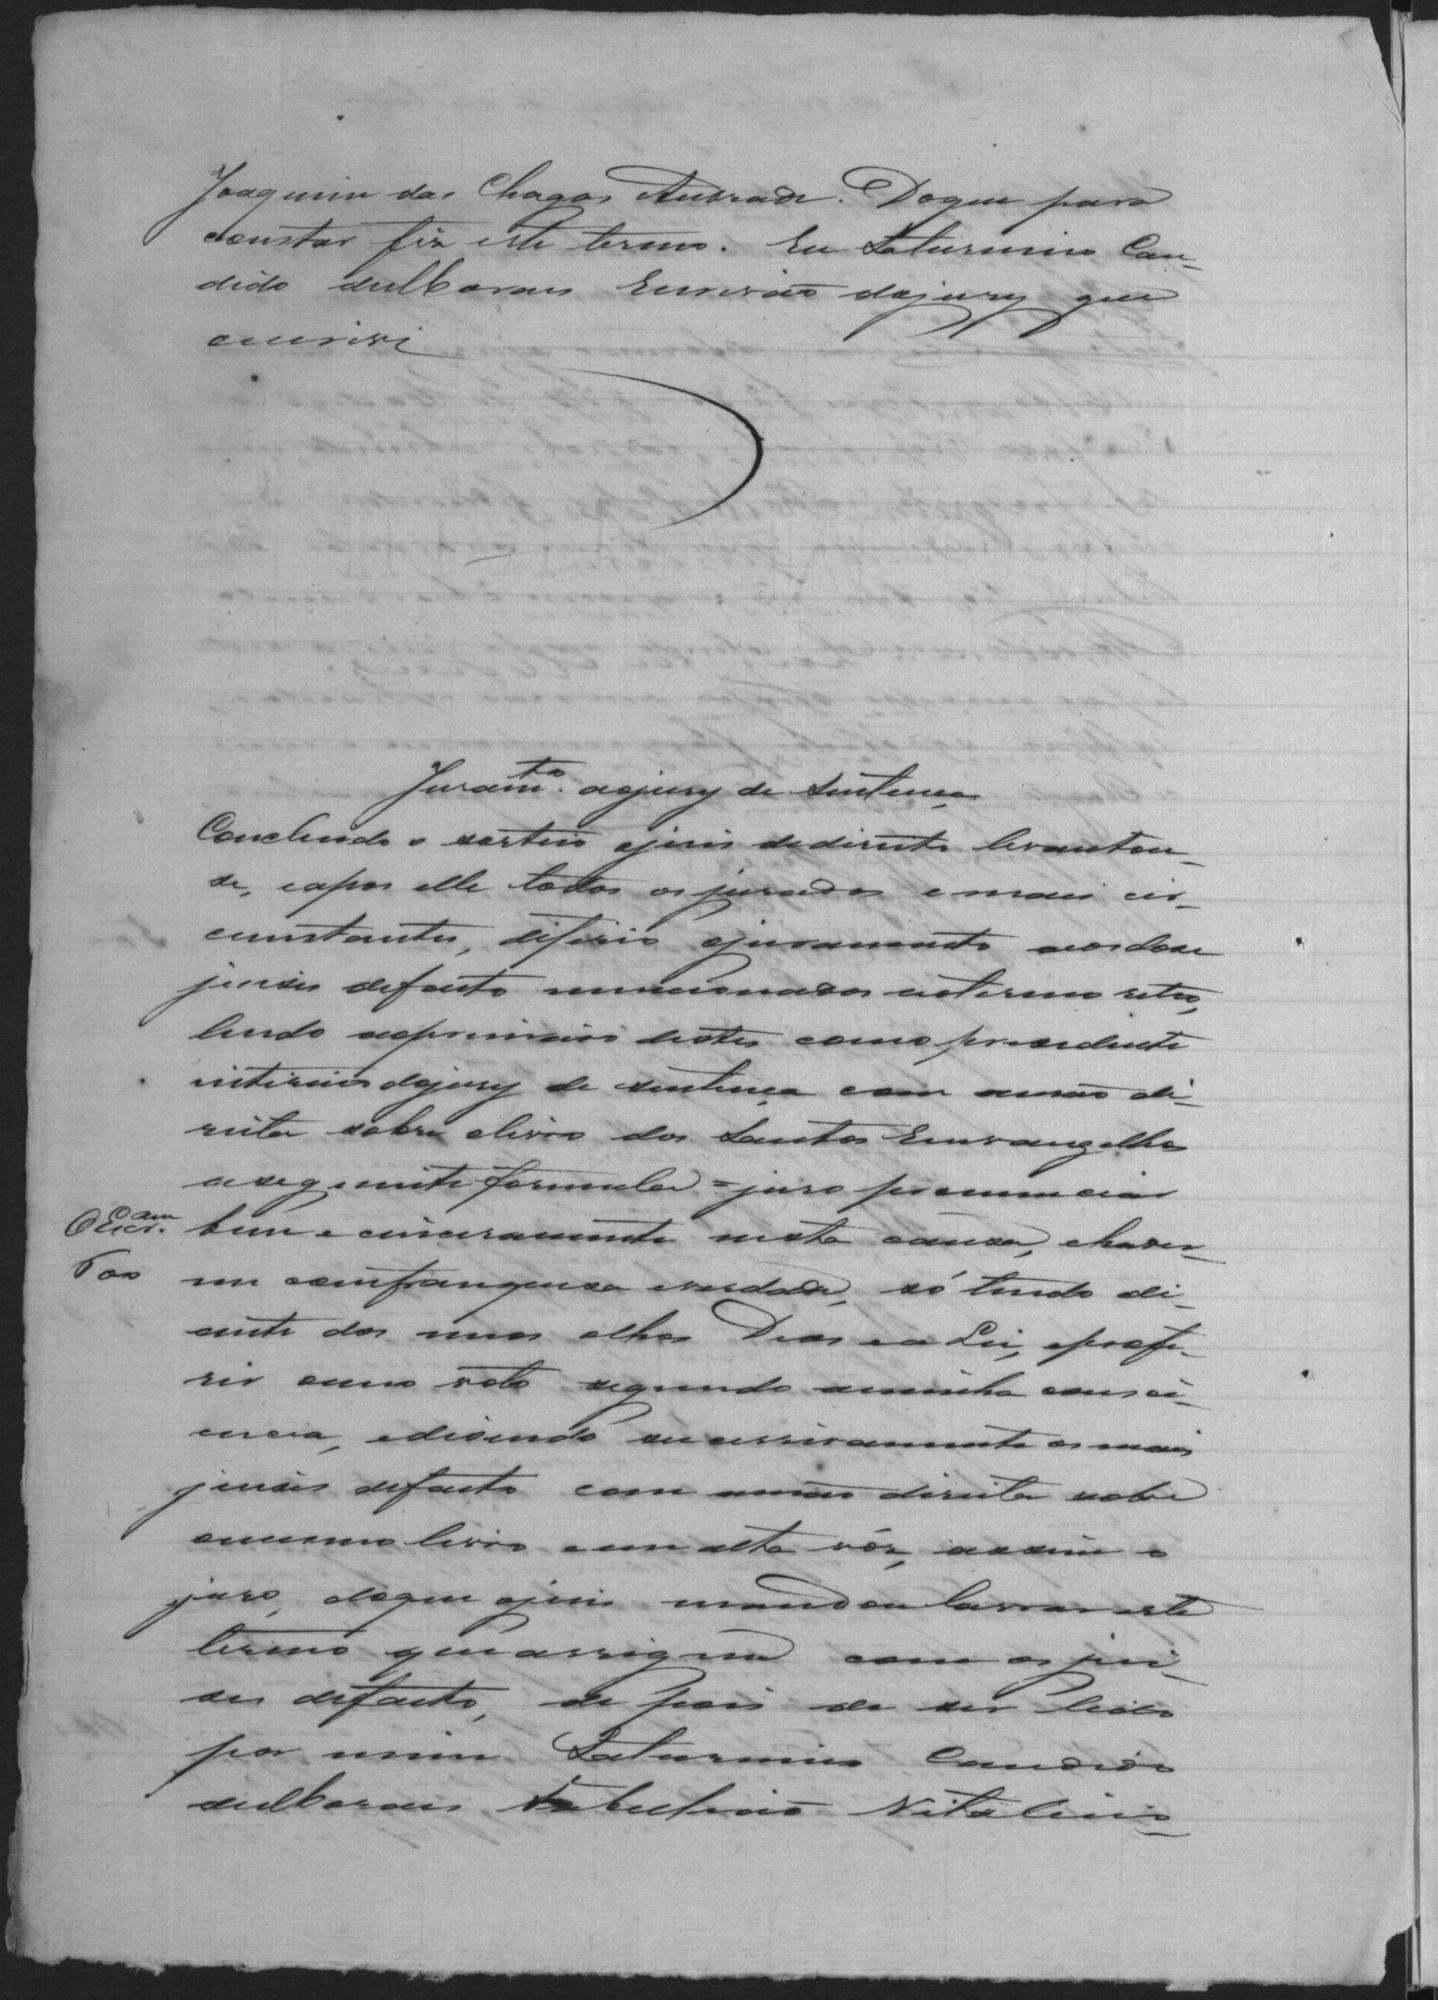 Joaquim das Chagas Andrade. Do que para
constar fiz este termo. Eu Saturnino Can-
dido de Moraes Escrivão do jury que
escrivi
Juramto. ao jury de Sentença
Concluido o sorteio o juis de direito levantou-
se, e apos elle todos os jurados e mais cir-
cunstantes, diferio o juramento aos dose
juises de facto mencionados no termo retro,
lendo o primeiro destes como presidente
interino do jury de sentença com a mão di-
reita sobre o livro dos Santos Envangelhos
a seguinte formula = juro pronunciar
O Escram.
bem e sinceramente nesta causa, e haver-
me com franquesa e verdade, só tendo di-
ante dos meus olhos Deos e a Lei, e profe-
rir o meu voto segundo a minha consci-
encia, e disendo sucessivamente os mais
juises de facto com a mão direita sobre
o mesmo livro e em alta vóz, assim o
juro, do que o juis mandou lavrar este
termo que assigna com os jui-
ses de facto, de pois de ser lido
por mim Saturnino Candido
de Moraes Tabelião Vitalicio